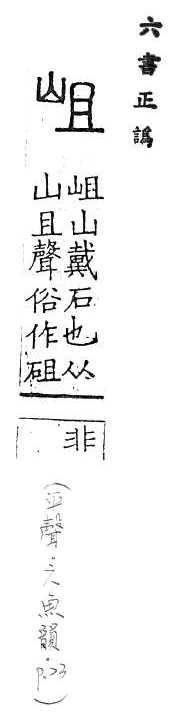 六書正譌
岨
岨山戴石也从
山且聲俗作砠
非
(平聲 魚韻 p.23)